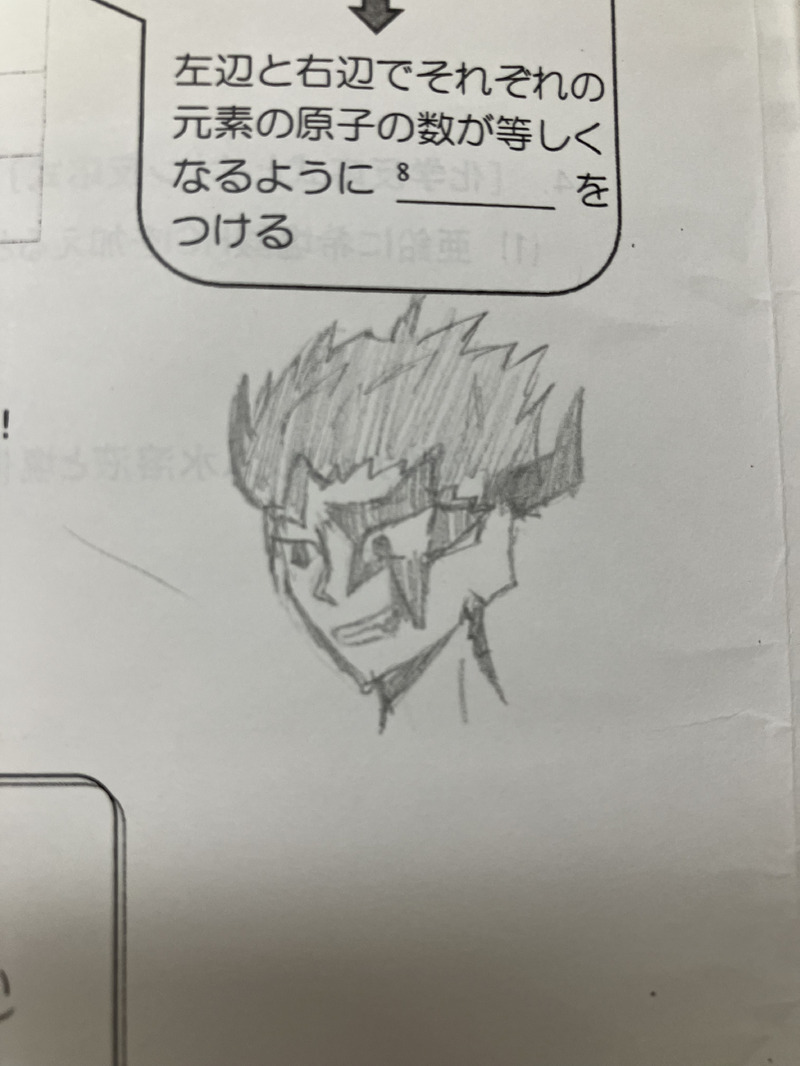 左辺と右辺でそれぞれの
元素の原子の数が等しく
なるように 8 ______ を
つける
!